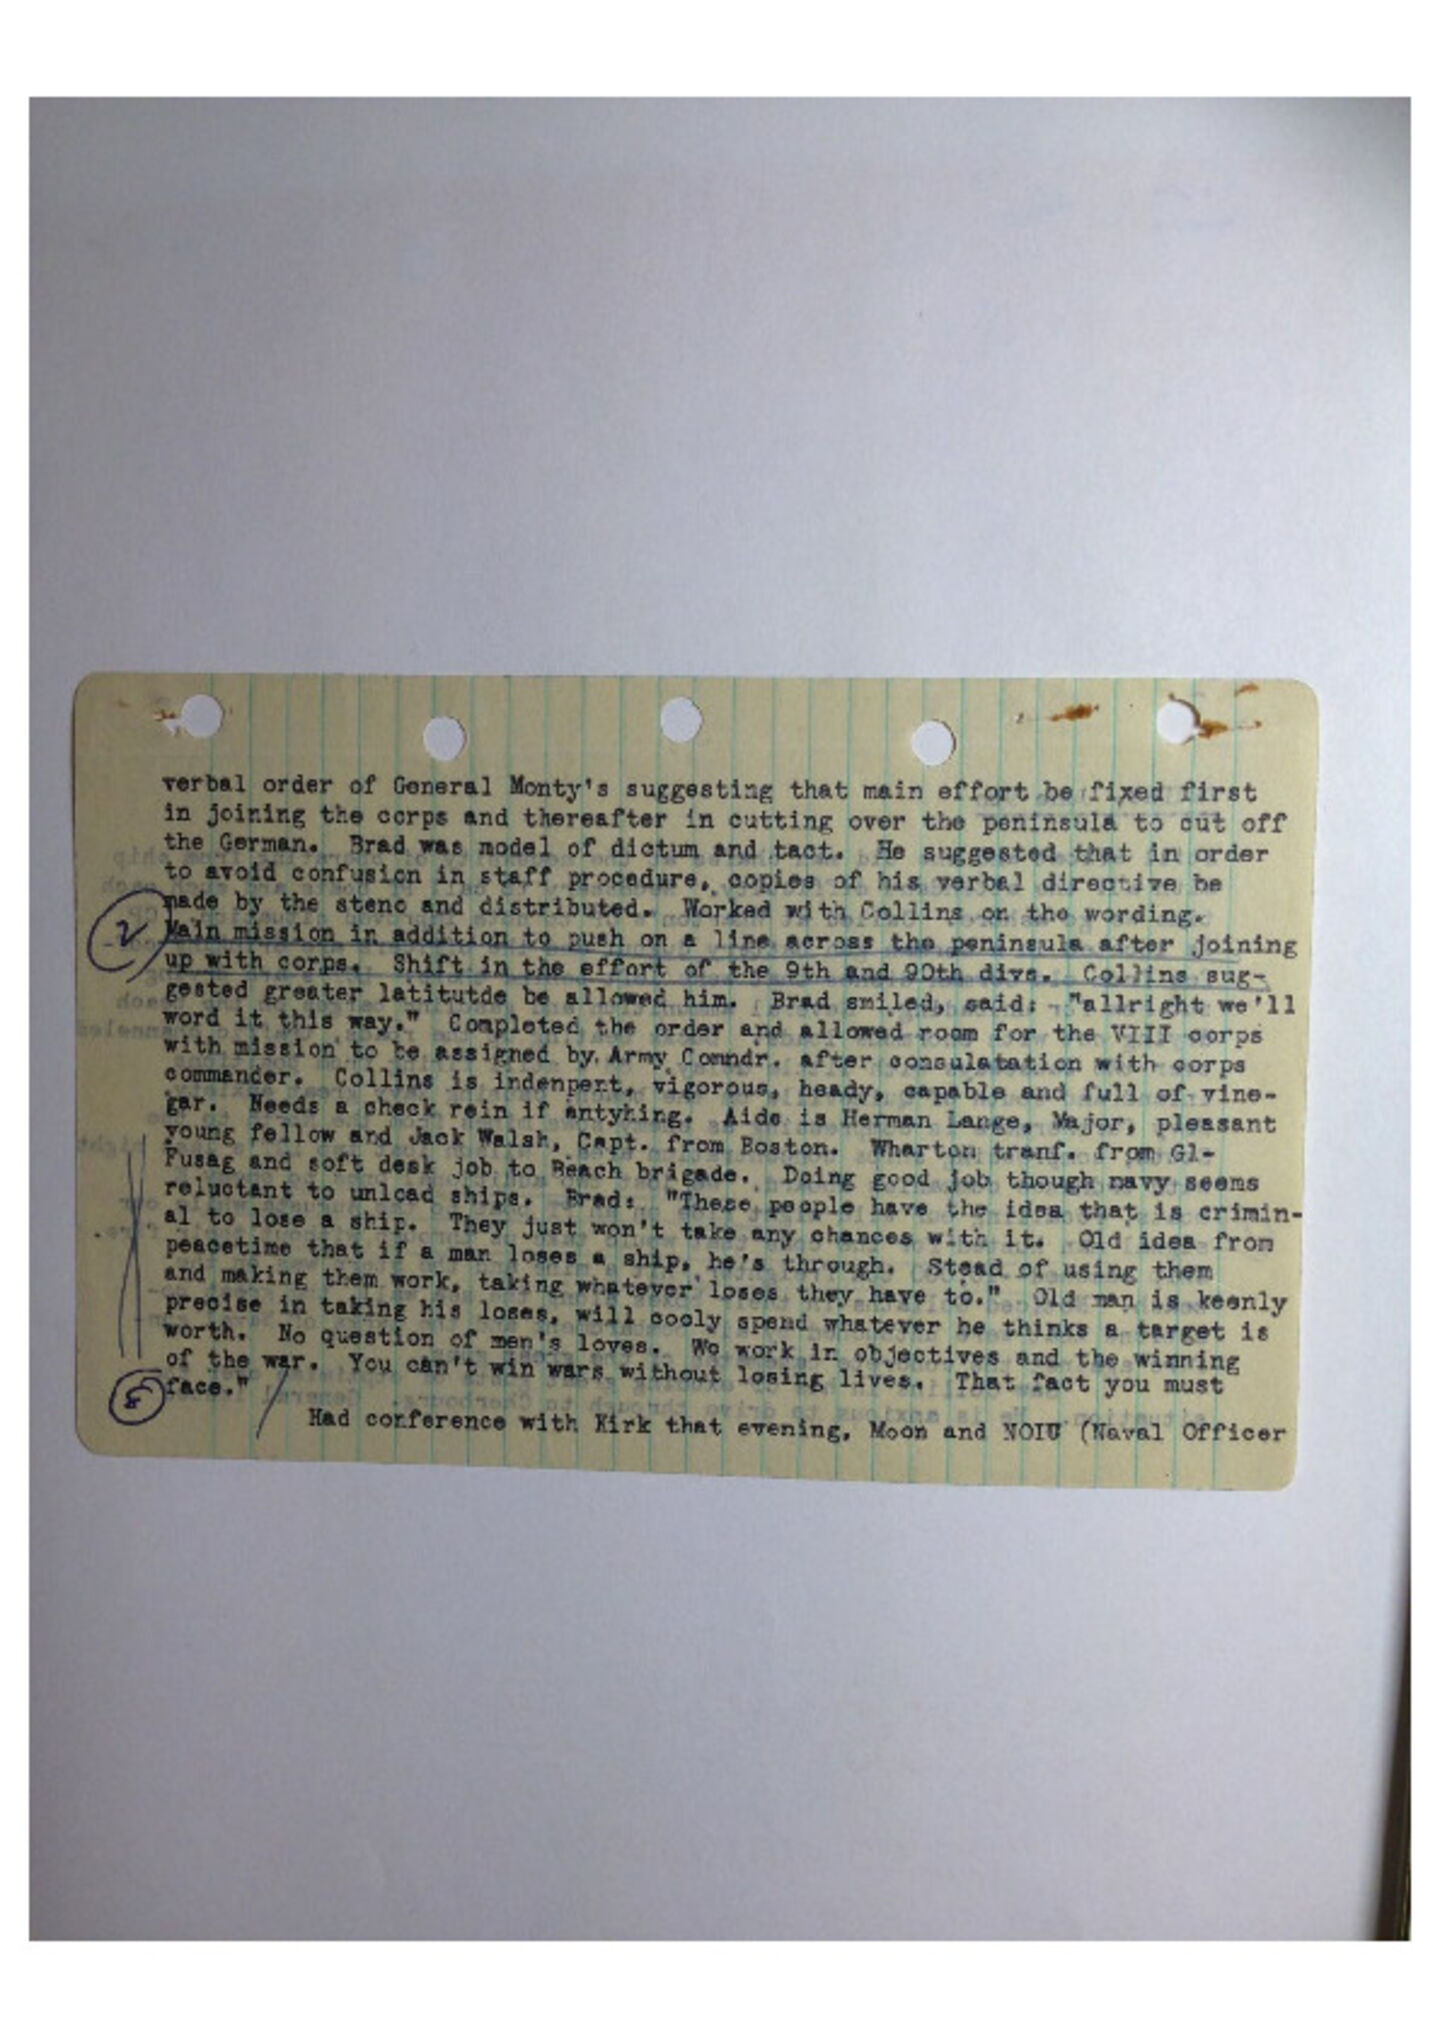 verbal order of General Monty's suggesting that main effort be fixed first
in joining the corps and thereafter in cutting over the peninsula to cut off
the German. Brad was model of dictum and tact. He suggested that in order
to avoid confusion in staff procedure, copies of his verbal directive be
made by the steno and distributed. Worked with Collins on the wording.
2
Main mission in addition to push on a line across the peninsula after joining
up with corps. Shift in the effort of the 9th and 90th divs. Collins sug-
gested greater latitutde be allowed him. Brad smiled, said: "allright we'll
word it this way." Completed the order and allowed room for the VIII corps
with mission to be assigned by Army Comndr. after consulatation with corps
commander. Collins is indenpent, vigorous, heady, capable and full of vine-
gar. Needs a check rein if antyhing. Aide is Herman Lange, Major, pleasant
young fellow and Jack Walsh, Capt. from Boston. Wharton tranf. from G1-
Fusag and soft desk job to Beach brigade. Doing good job though navy seems
reluctant to unload ships. Brad: "These people have the idea that is crimin-
al to lose a ship. They just won't take any chances with it. Old idea from
peacetime that if a man loses a ship, he's through. Stead of using them
and making them work, taking whatever loses they have to." Old man is keenly
precise in taking his loses, will cooly spend whatever he thinks a target is
worth. No question of men's loves. We work in objectives and the winning
of the war. You can't win wars without losing lives. That fact you must
face."
Had conference with Kirk that evening, Moon and NOIU (Naval Officer